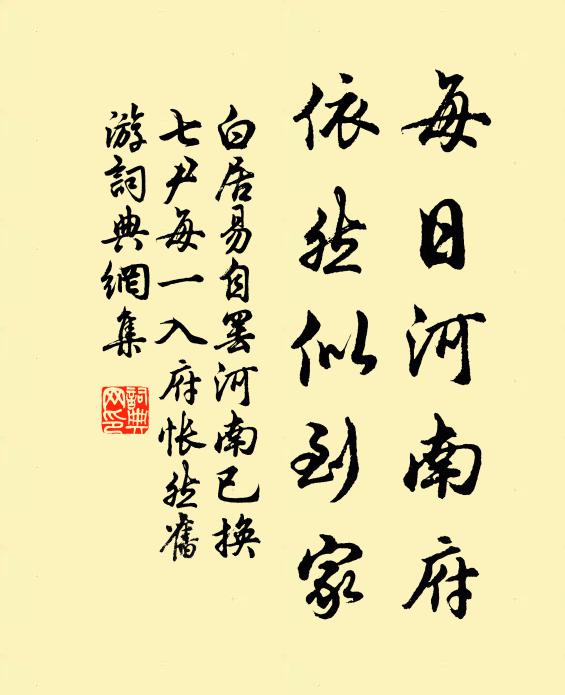 每日河南府
依然似到家
白居易自罢河南已換
七尹每一入府怅然舊
游詞典網集
詞典
网印